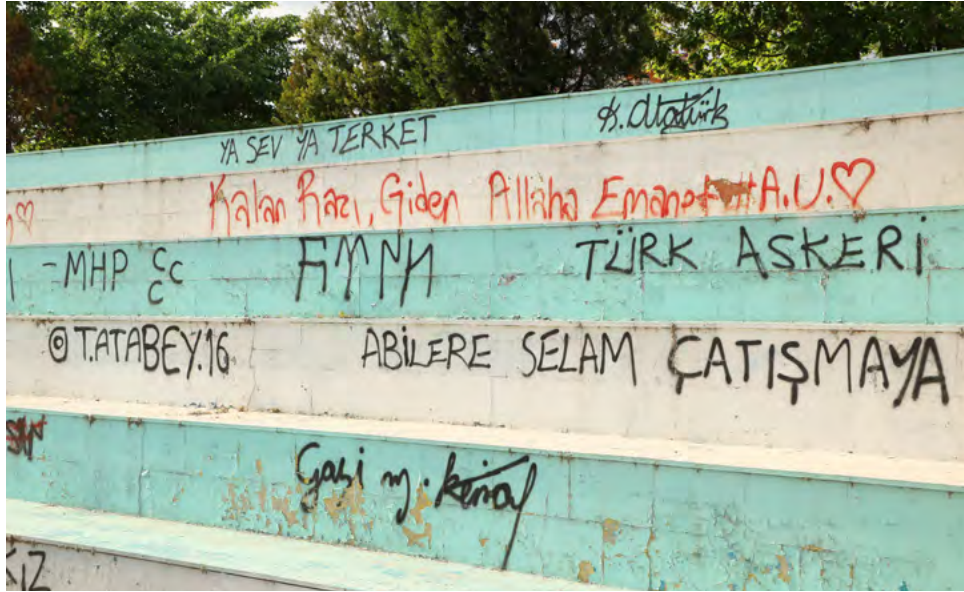 YA SEV YA TERKET K. Atatürk
Kalan Razı, Giden Allaha Emanet #A.U.♡
-MHP CCC TÜRK ASKERİ
©T.ATABEY.16 ABİLERE SELAM ÇATIŞMAYA
Gazi M. Kemal
KIZ